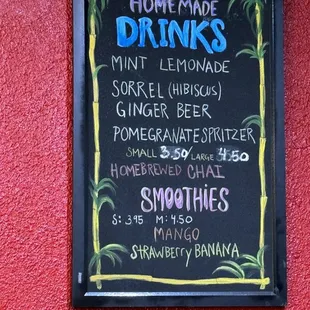 HOMEMADE
DRINKS
MINT LEMONADE
SORREL (HIBISCUS)
GINGER BEER
POMEGRANATE SPRITZER
SMALL 3.50/LARGE 4.50
HOMEBREWED CHAI
SMOOTHiES
S: 3.95 M: 4.50
MANGO
STRAWBERRY BANANA